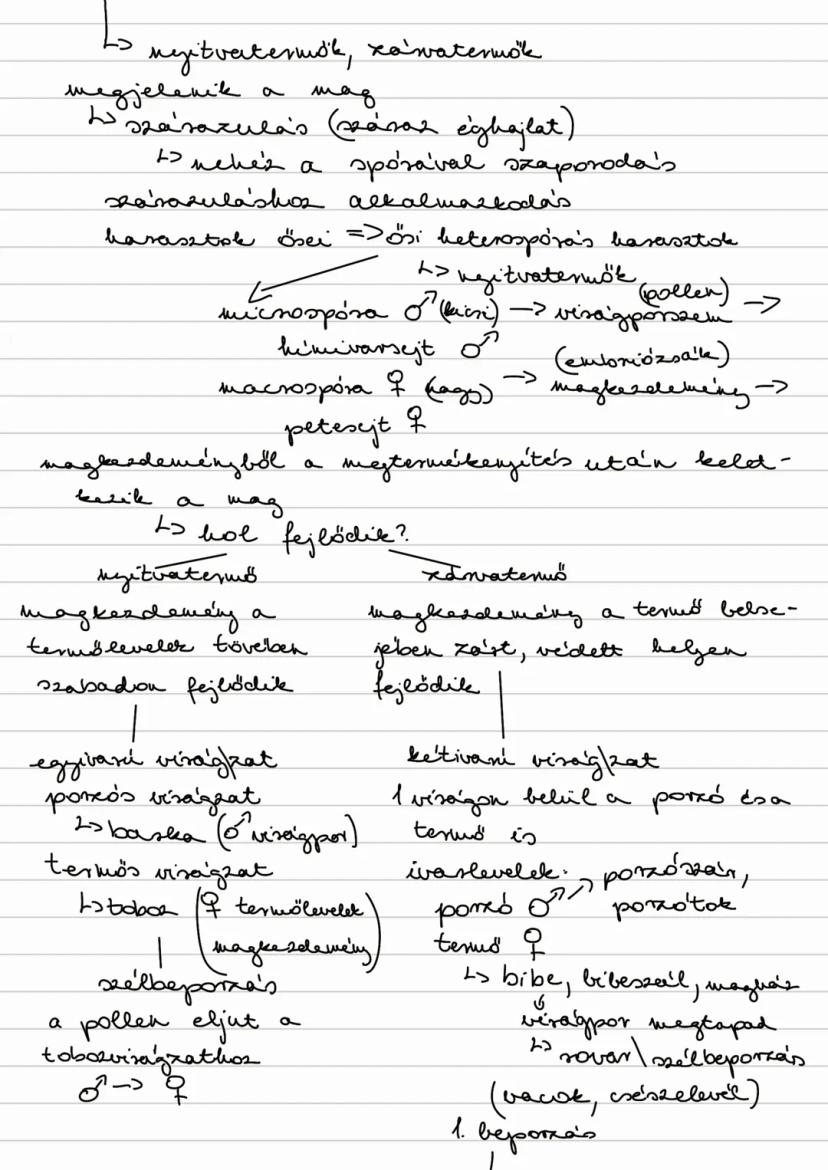 ↳ nyitvatermők, zárvatermők
megjelenik a mag
↳ szárazulás (száraz éghajlat)
↳ nehéz a spórával szaporodás
szárazuláshoz alkalmazkodás
harasztok ősei => ősi heterospórás harasztok
↳ nyitvatermők
(pollen)
microspóra ♂ (kicsi) → virágporszem →
hímivarsejt ♂
(embriózsák)
macrospóra ♀ (nagy) → magkezdemény →
petesejt ♀
magkezdeményből a megtermékenyítés után kelet-
kezik a mag
↳ hol fejlődik?
nyitvatermő
magkezdemény a
termőlevelek tövében
szabadon fejlődik
egyivarú virág/zat
porzós virágzat
↳ barka (♂ virágpor)
termős virágzat
↳ toboz (♀ termőlevelek
magkezdemény)
szélbeporzás
a pollen eljut a
tobozvirágzathoz
♂ → ♀
zárvatermő
magkezdemény a termő belse-
jében zárt, védett helyen
fejlődik
kétivarú virág\zat
1 virágon belül a porzó és a
termő is
ivarlevelek:
porzó ♂ → porzószár,
porzótok
termő ♀
↳ bibe, bibeszál, magház
⇓
virágpor megtapad
↳ rovar\szélbeporzás
(vacok, csészelevél)
1. beporzás